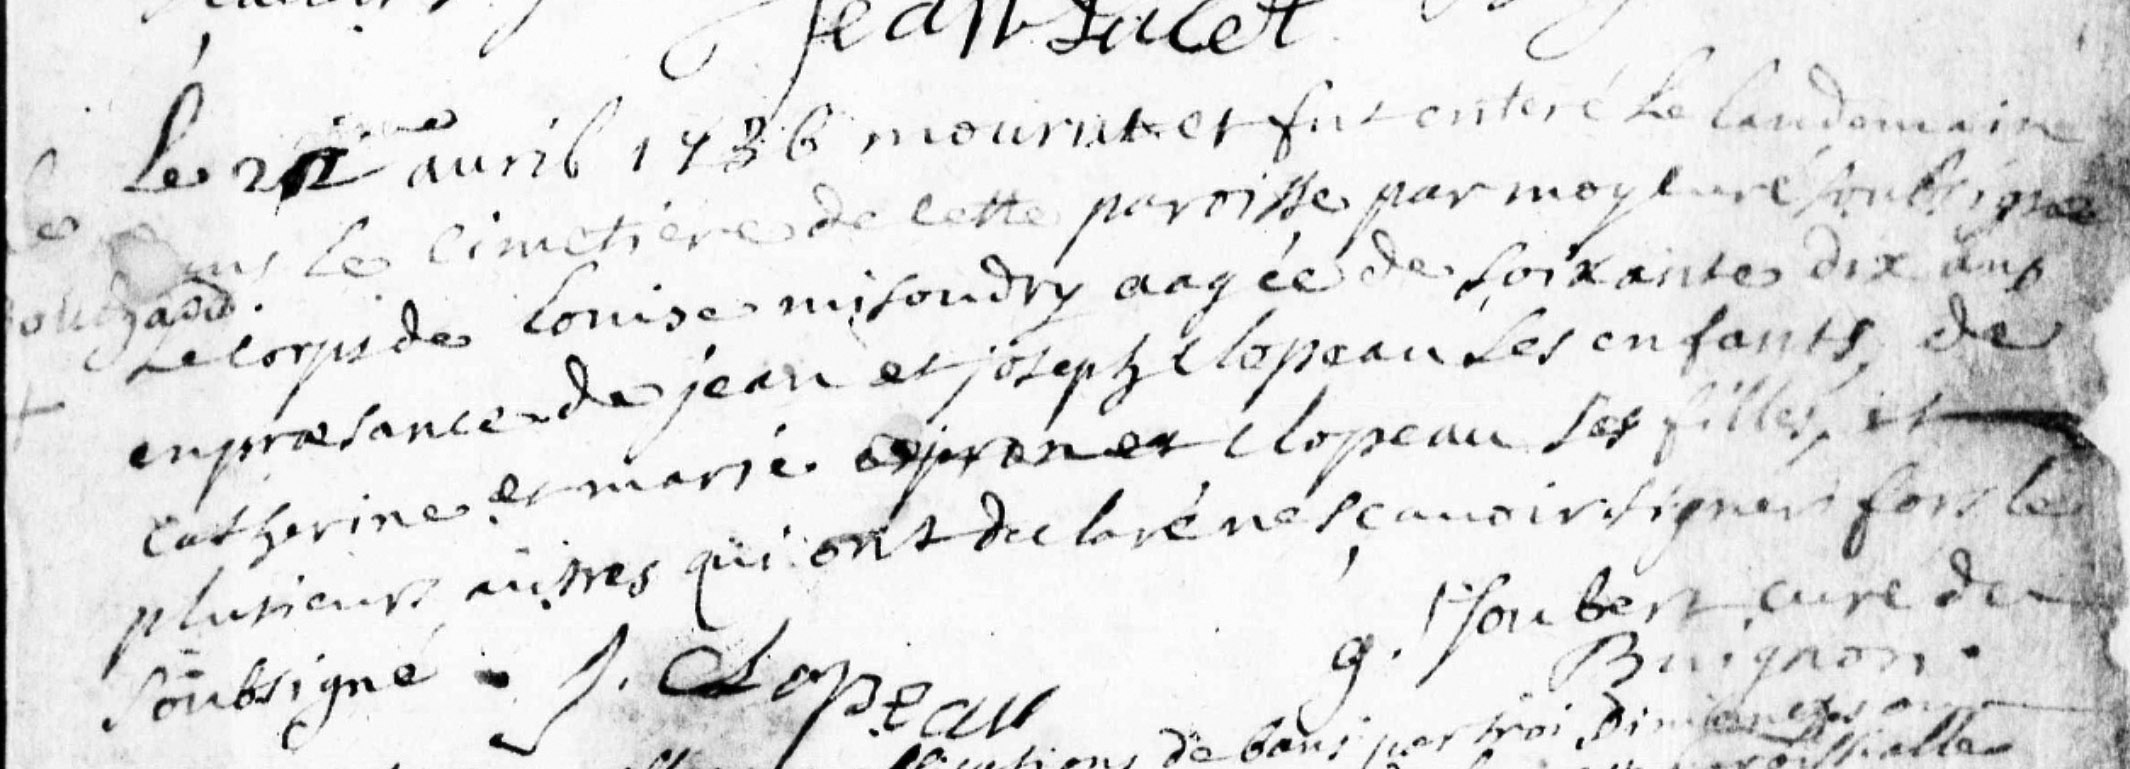 Jean Lucet
Le 2 avril 1736 mourut et fut enteré le landemaine
le cimetiere de cette paroisse par moy curé soubsigné
Le corps de Louise misoudry aagée de soixante dix ans
en præsance de jean et joseph Clopeau ses enfants, de
catherine et marie Clopeau ses filles, et
plusieurs autres qui ont declaré ne sçauoir signer fors le
soubsigné. J. Clopeau g. Joubert curé de
Buignon.
de bans par troi